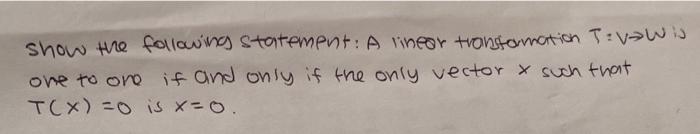 show the following statement: A linear transformation T: V→W is
one to one if and only if the only vector x such that
T(x) =0 is x=0.